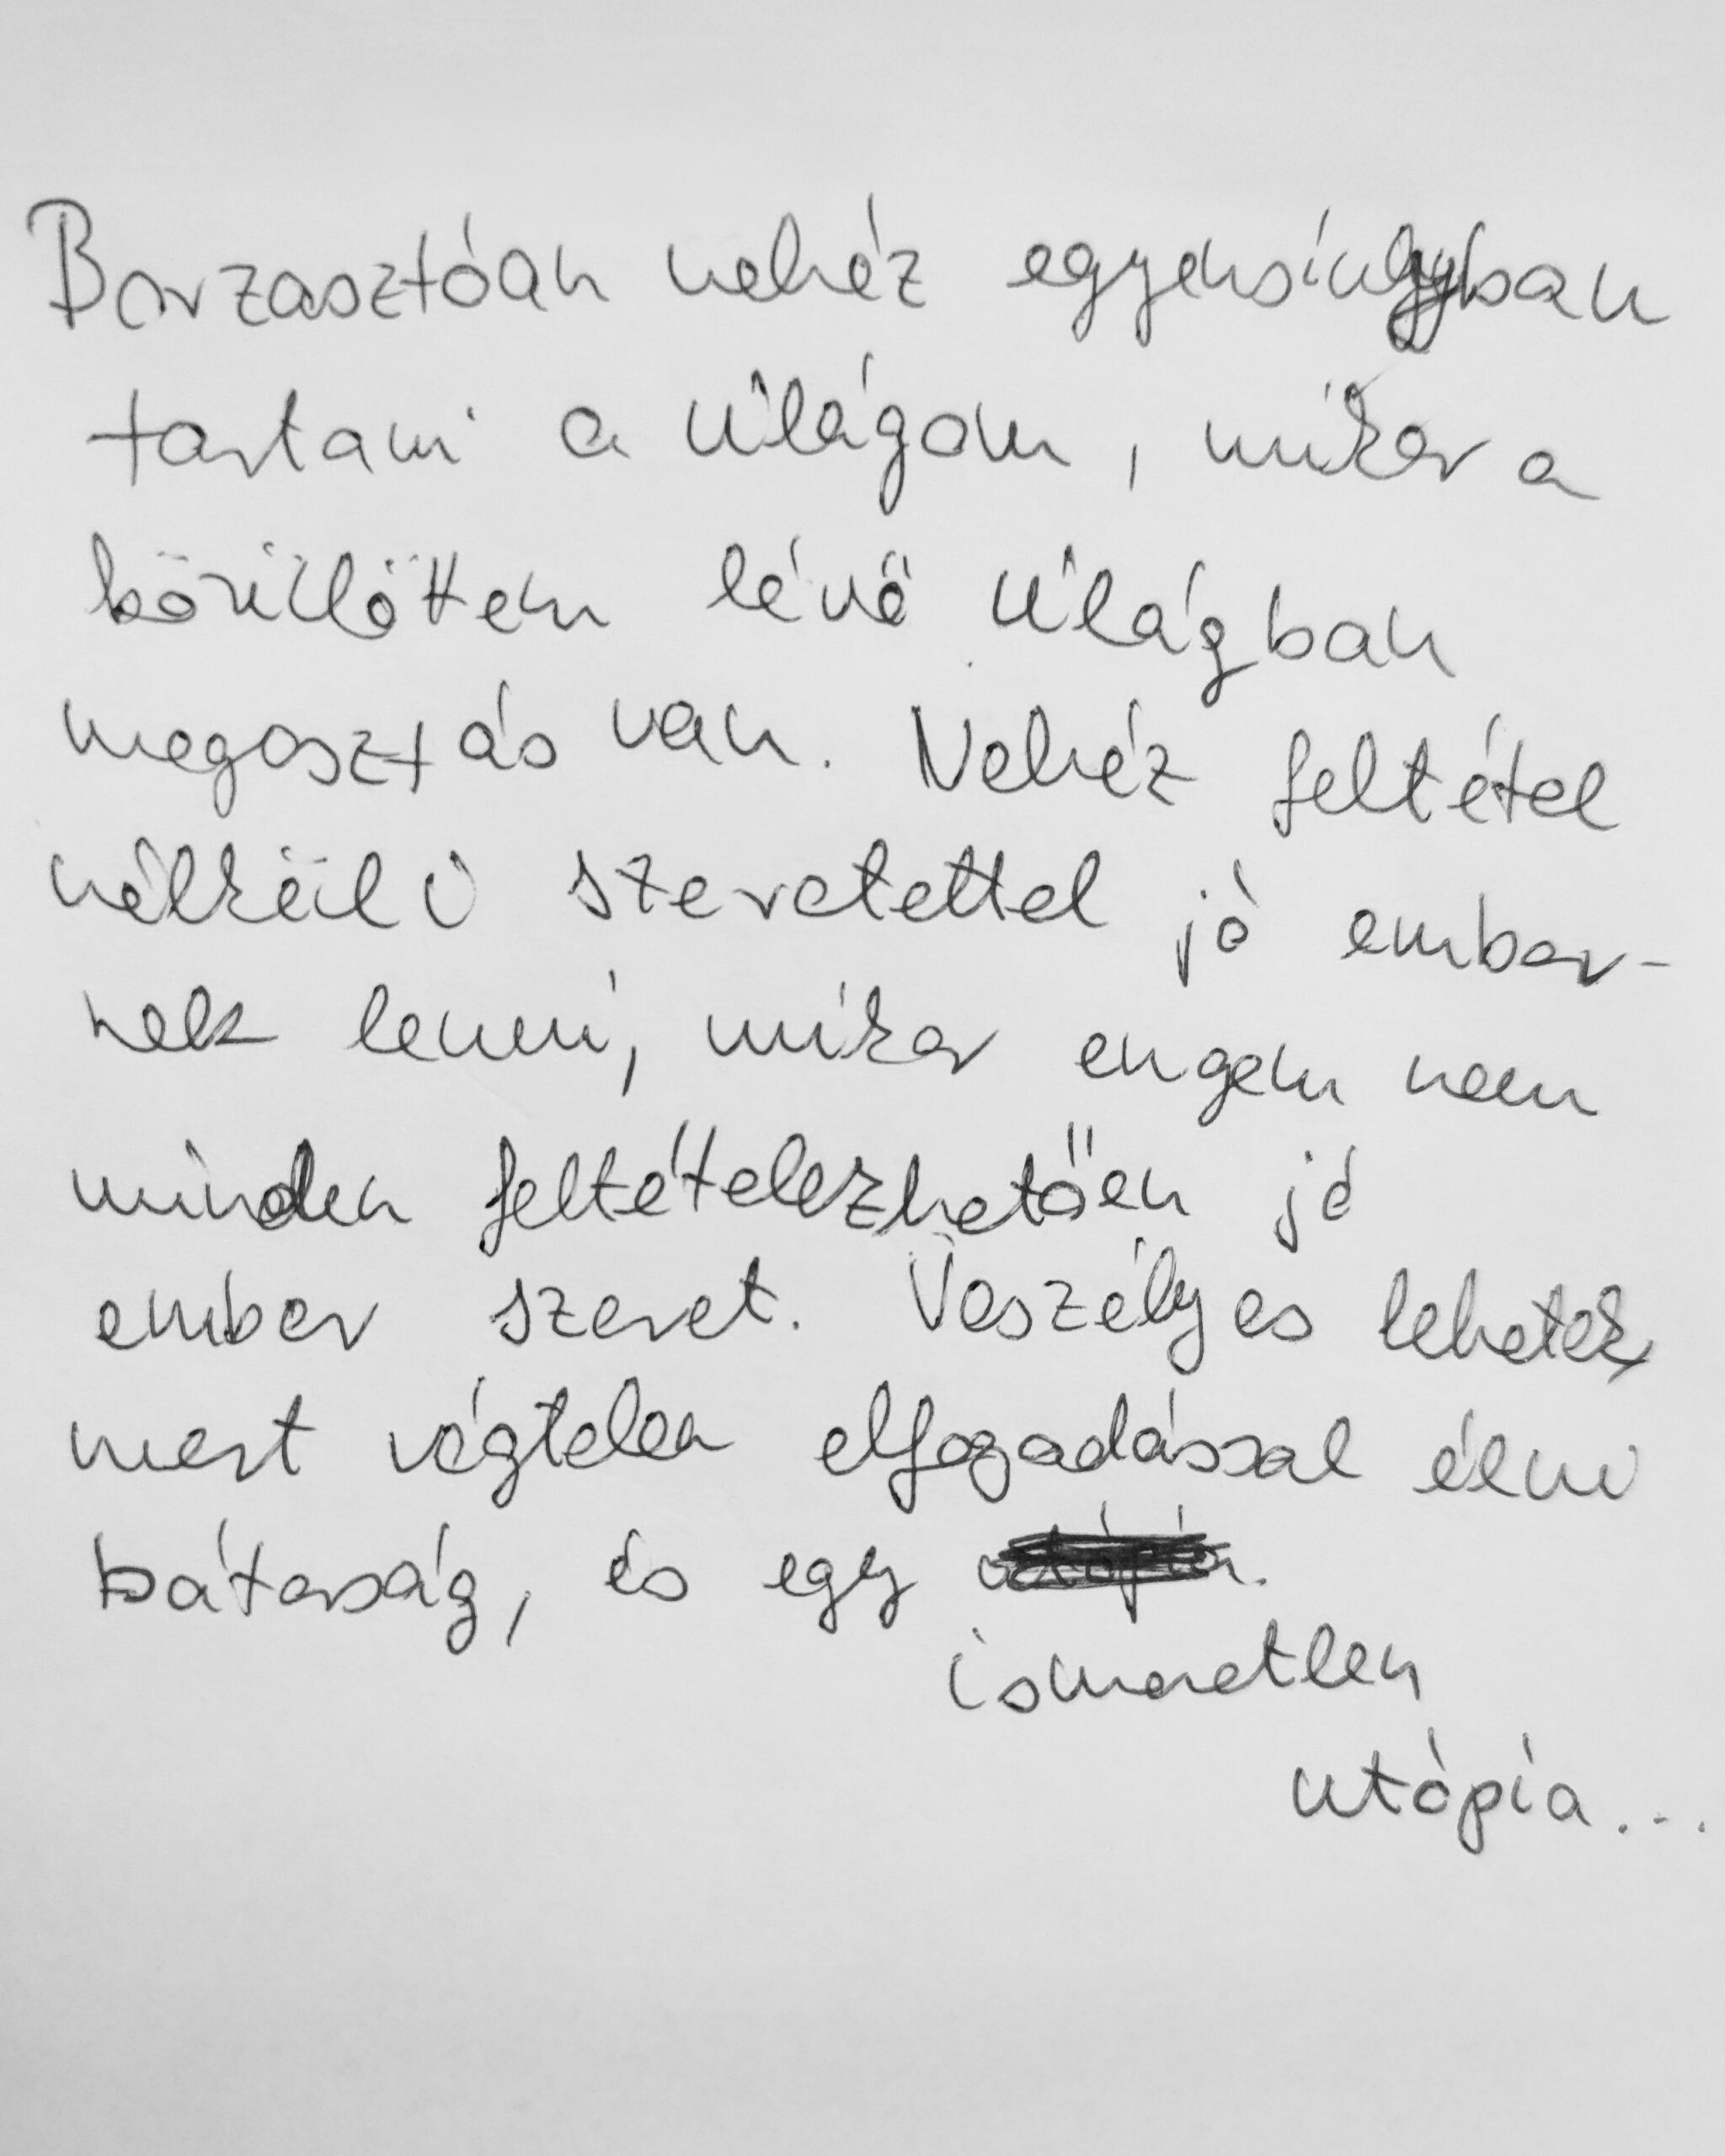 Borzasztóan nehéz egyensúlyban
tartani a világom, mikor a
körülöttem lévő világban
megosztás van. Nehéz feltétel
nélküli szeretettel jó ember-
nek lenni, mikor engem nem
minden feltételezhetően jó
ember szeret. Veszélyes lehetek,
mert végtelen elfogadással élni
bátorság, és egy utópia.
ismeretlen
utópia...